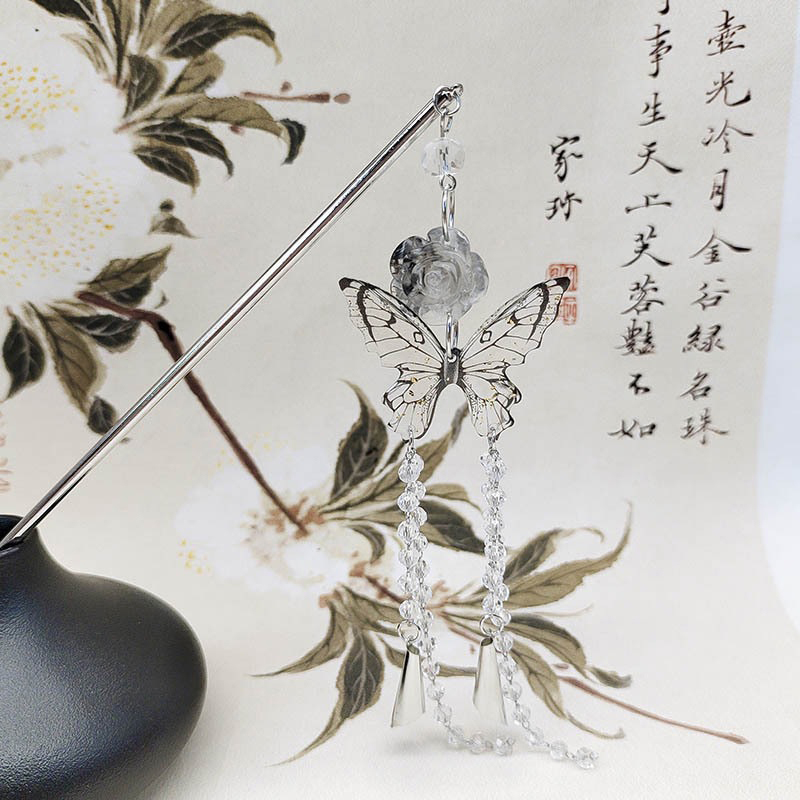 壺光冷月金谷綠名珠
事生天工芙蓉豔不如
家珎